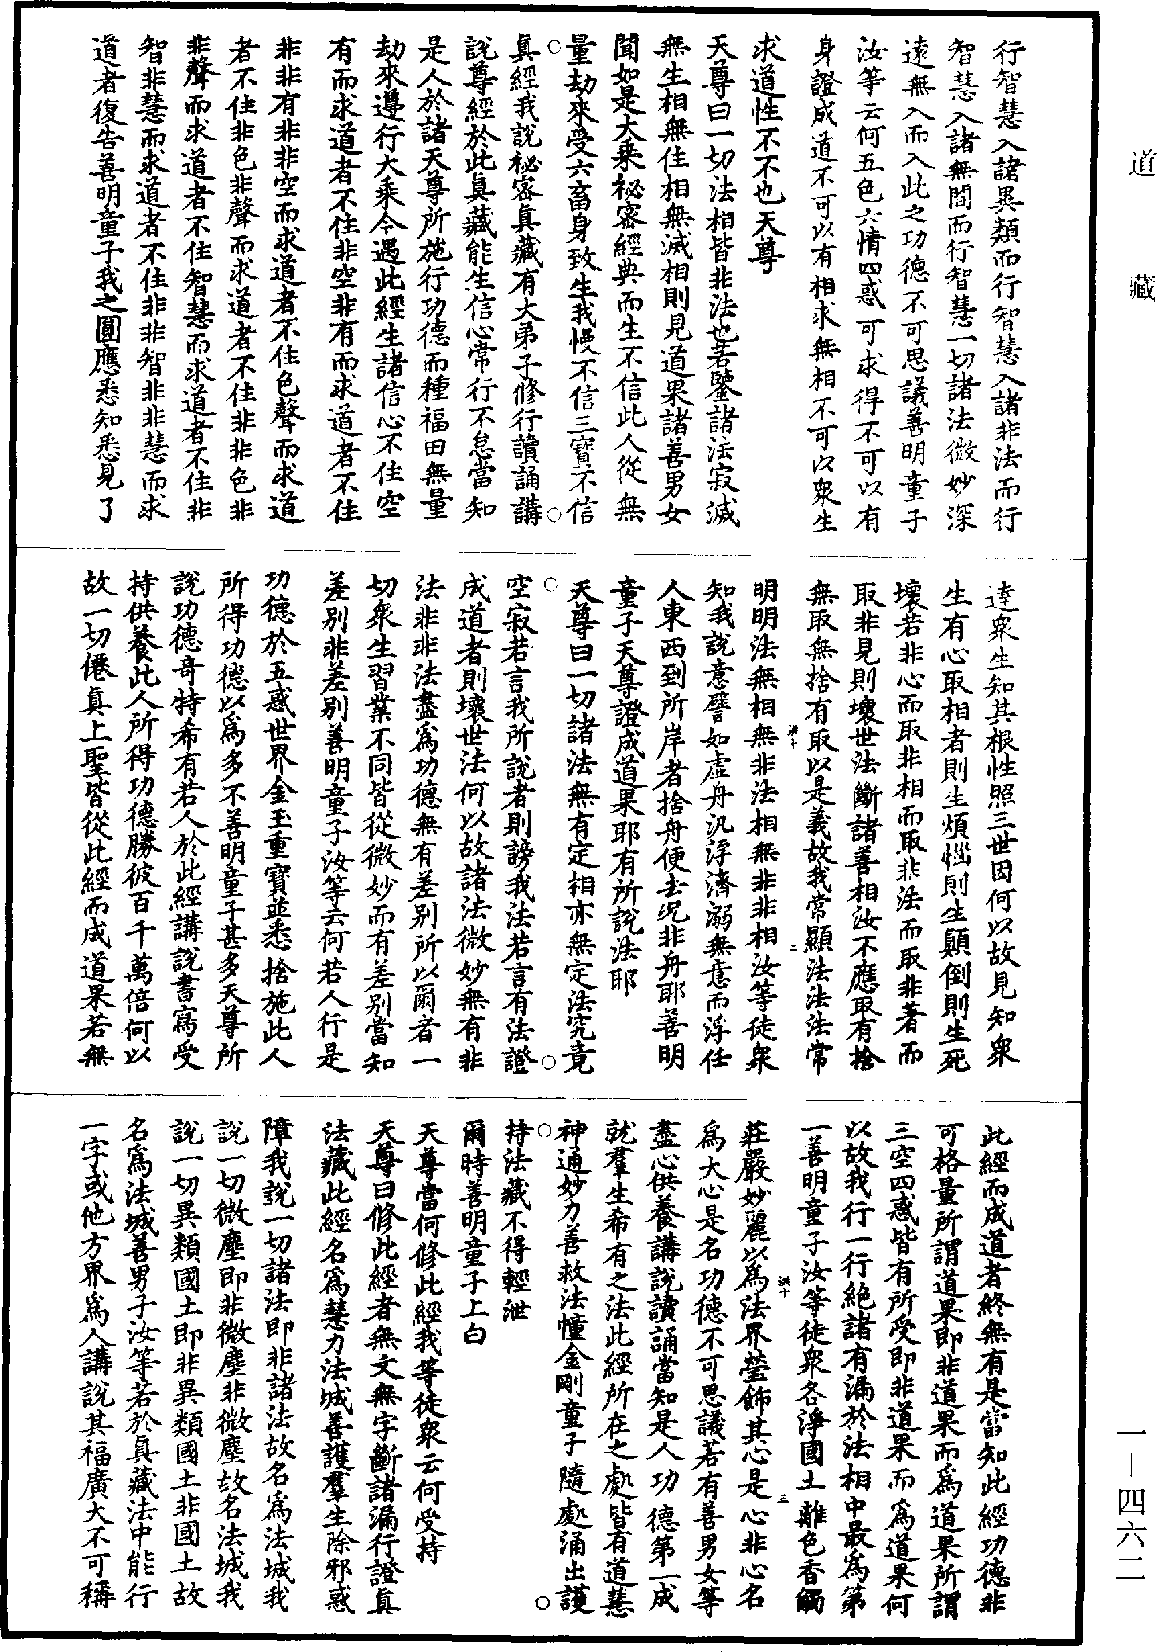 道藏
行智慧入諸異類而行智慧入諸非法而行
智慧入諸無間而行智慧一切諸法微妙深
遠無入而入此之功德不可思議善明童子
汝等云何五色六情四惑可求得不可以有
身證成道不可以有相求無相不可以衆生
求道性不不也天尊
天尊曰一切法相皆非法也若鑒諸法寂滅
無生相無住相無滅相則見道果諸善男女
聞如是大乘祕密經典而生不信此人從無
量劫來受六畜身致生我慢不信三寶不信
真經我說祕密真藏有大弟子修行讀誦講
說尊經於此真藏能生信心常行不怠當知
是人於諸天尊所施行功德而種福田無量
劫來遵行大乘今遇此經生諸信心不住空
有而求道者不住非空非有而求道者不住
非非有非非空而求道者不住色聲而求道
者不住非色非聲而求道者不住非非色非
非聲而求道者不住智慧而求道者不住非
智非慧而求道者不住非非智非非慧而求
道者復告善明童子我之圓應悉知悉見了
達衆生知其根性照三世因何以故見知衆
生有心取相者則生煩惱則生顛倒則生死
壞若非心而取非相而取非法而取非著而
取非見則壞世法斷諸善相汝不應取有捨
無取無捨有取以是義故我常顯法法法常
明明法無相無非法相無非非相汝等徒衆
知我說意譬如虛舟汎浮濟溺無意而浮任
人東西到所岸者捨舟便去況非舟耶善明
童子天尊證成道果耶有所說法耶
天尊曰一切諸法無有定相亦無定法究竟
空寂若言我所說者則謗我法若言有法證
成道者則壞世法何以故諸法微妙無有非
法非非法盡爲功德無有差別所以爾者一
切衆生習業不同皆從微妙而有差別當知
差別非差別善明童子汝等云何若人行是
功德於五惑世界金玉重寶並悉捨施此人
所得功德以爲多不善明童子甚多天尊所
說功德奇特希有若人於此經講說書寫受
持供養此人所得功德勝彼百千萬倍何以
故一切僊真上聖皆從此經而成道果若無
此經而成道者終無有是當知此經功德非
可格量所謂道果即非道果而爲道果所謂
三空四惑皆有所受即非道果而爲道果何
以故我行一行絶諸有漏於法相中最爲第
一善明童子汝等徒衆各淨國土離色香觸
莊嚴妙麗以爲法界瑩飾其心是心非心名
爲大心是名功德不可思議若有善男女等
盡心供養講說讀誦當知是人功德第一成
就羣生希有之法此經所在之處皆有道慧
神通妙力善救法幢金剛童子隨處涌出護
持法藏不得輕泄
爾時善明童子上白
天尊當何修此經我等徒衆云何受持
天尊曰修此經者無文無字斷諸漏行證真
法藏此經名爲慧力法城善護羣生除邪惑
障我說一切諸法即非諸法故名爲法城我
說一切微塵即非微塵非微塵故名法城我
說一切異類國土即非異類國土非國土故
名爲法城善男子汝等若於真藏法中能行
一字或他方界爲人講說其福廣大不可稱
一—四六二